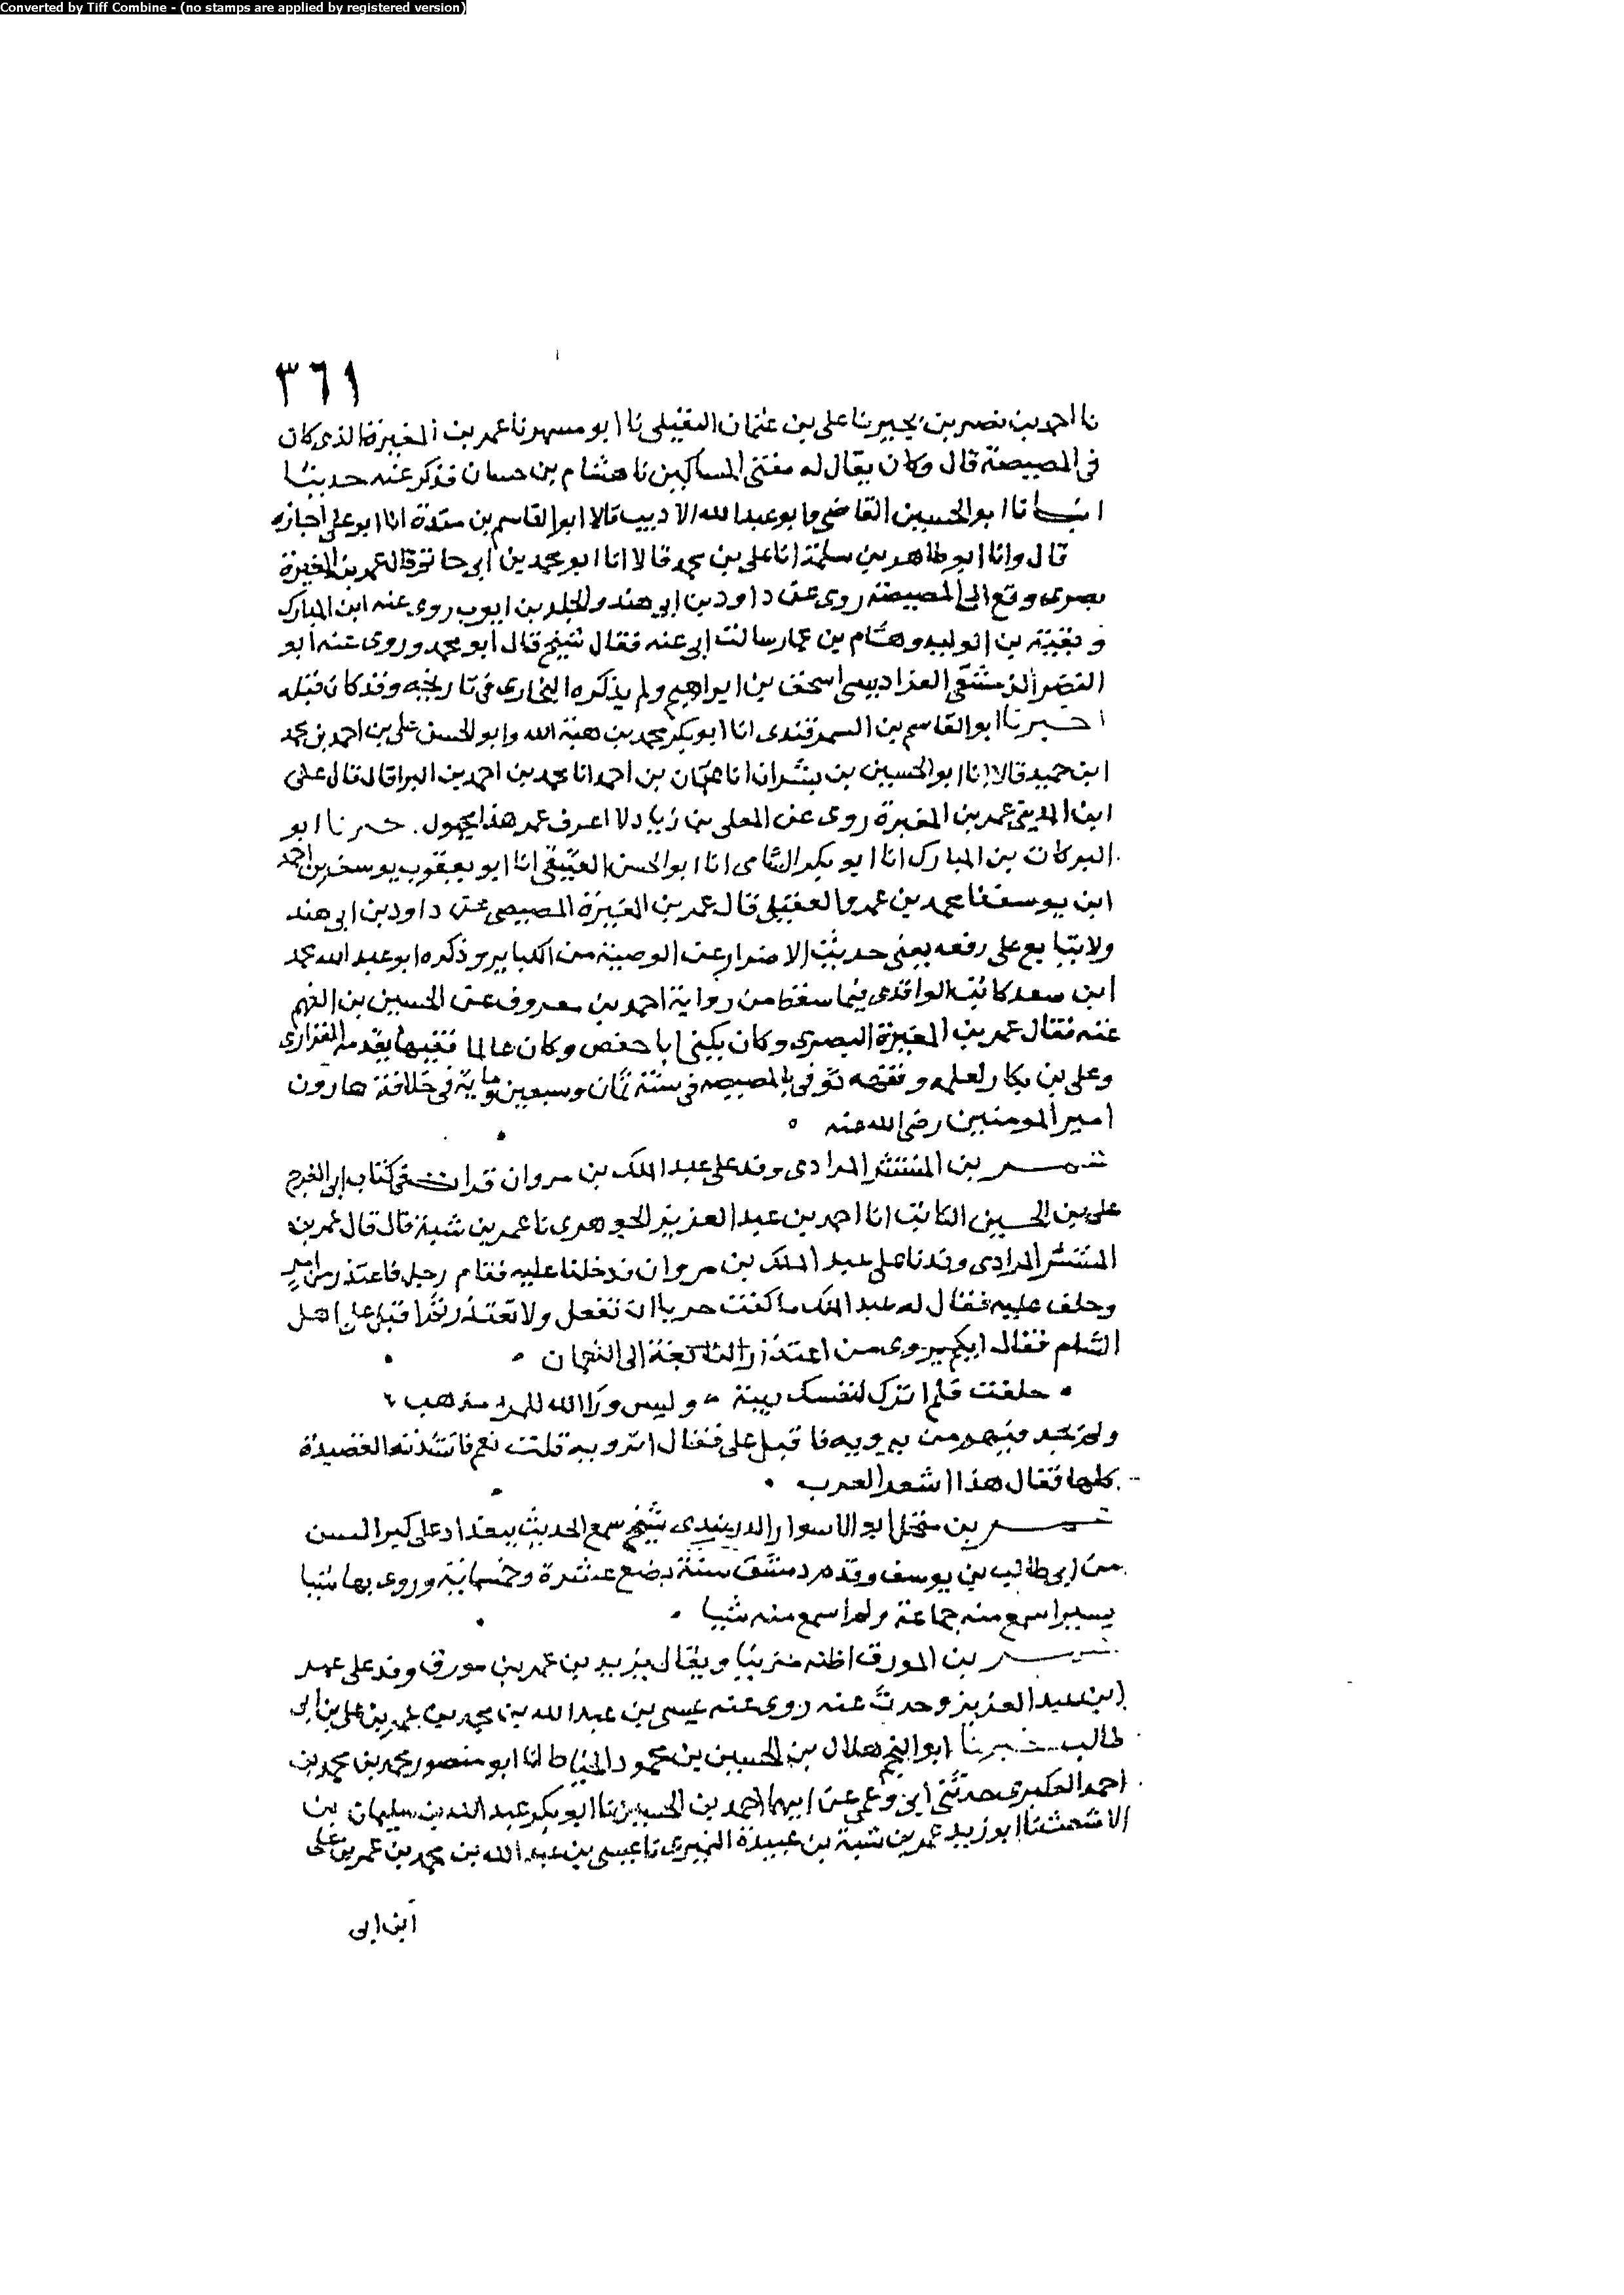 Converted by Tiff Combine - (no stamps are applied by registered version)
٣٦١
نا احمد بن نصر بن بجير نا على بن عثمان النفيلى نا ابو مسهر نا عمر بن المغيرة الذى كان
فى المصيصة قال وكان يقال له مفتى المساكين نا هشام بن حسان فذكر عنه حديثا
انبانا ابو الحسين القاضى وابو عبد الله الاديب قالا ابو القاسم بن مندة انا ابو على اجازة
قال وانا ابو طاهر بن سلمة انا على بن محمد قالا انا ابو محمد بن ابى حاتم قال عمر بن المغيرة
بصرى وقع الى المصيصة روى عن داود بن ابى هند والجلد بن ايوب روى عنه ابن المبارك
وبقية بن الوليد وهشام بن عمار سالت ابى عنه فقال شيخ قال ابو محمد وروى عنه ابو
النضر الدمشقى الفراديسى اسحق بن ابراهيم ولم يذكره البخارى فى تاريخه وقد كان قبله
اخبرنا ابو القاسم بن السمرقندى انا ابو بكر محمد بن هبة الله وابو الحسن على بن احمد بن محمد
ابن حميد قالا انا ابو الحسين بن بشران انا عثمان بن احمد انا محمد بن احمد بن البرا قال قال على
ابن المدينى عمر بن المغيرة روى عن المعلى بن زياد لا اعرف عمر هذا مجهول. خبرنا ابو
البركات بن المبارك انا ابو بكر الشامى انا ابو الحسن العتيقى انا ابو يعقوب يوسف بن احمد
ابن يوسف نا محمد بن عمرو العقيلى قال عمر بن المغيرة المصيصى عن داود بن ابى هند
ولا يتابع على رفعه يعنى حديث الاضرار عن الوصية من الكباير وذكره ابو عبد الله محمد
ابن سعد كاتب الواقدى فيما سقط من رواية احمد بن معروف عن الحسين بن الفهم
عنه فقال عمر بن المغيرة البصرى وكان يكنى ابا حفص وكان عالما فقيها يقدمه الفزارى
وعلى بن بكار لعلمه وفقهه توفى بالمصيصه فى سنة ثمان وسبعين وماية فى خلافة هارون
امير المومنين رضى الله عنه
عمر بن المنتشر المرادى وفد على عبد الملك بن مروان قرات فى كتاب ابى الفرج
على بن الحسين الكاتب انا احمد بن عبد العزيز الجوهرى نا عمر بن شبة قال قال عمر بن
المنتشر المرادى وفدنا على عبد الملك بن مروان فدخلنا عليه فقام رجل فاعتذر من امر
وحلف عليه فقال له عبد الملك ما كنت حريا ان تفعل ولا تعتذر ثم اقبل على اهل
الشام فقال ايكم يروى من اعتذار النابغة الى النعمان
حلفت فلم اترك لنفسك ريبة وليس ورا الله للمرء مذهب
ولم يجد فيهم من يرويه فاقبل على فقال اترويه قلت نعم فانشدته القصيدة
كلها فقال هذا اشعر العرب
عمر بن منخل ابو الاسوار الدربندى شيخ سمع الحديث ببغداد على كبر السن
من ابى طالب بن يوسف وقدم دمشق سنة بضع عشرة وخمسماية وروى بها شيا
يسيرا سمع منه جماعة ولم اسمع منه شيا
عمر بن المورق اظنه مزنيا ويقال يزيد بن عمر بن مورق وفد على عمر
ابن عبد العزيز وحدث عنه روى عنه عيسى بن عبد الله بن محمد بن عمر بن على بن ابى
طالب خبرنا ابو النجم هلال بن الحسين بن محمود الخياط انا ابو منصور محمد بن محمد بن
احمد العكبرى حدثنى ابى وعمى عن ابيهما احمد بن الحسين نا ابو بكر عبد الله بن سليمان بن
الاشعث نا ابو زيد عمر بن شبة بن عبيدة النميرى نا عيسى بن عبد الله بن محمد بن عمر بن على
ابن ابى